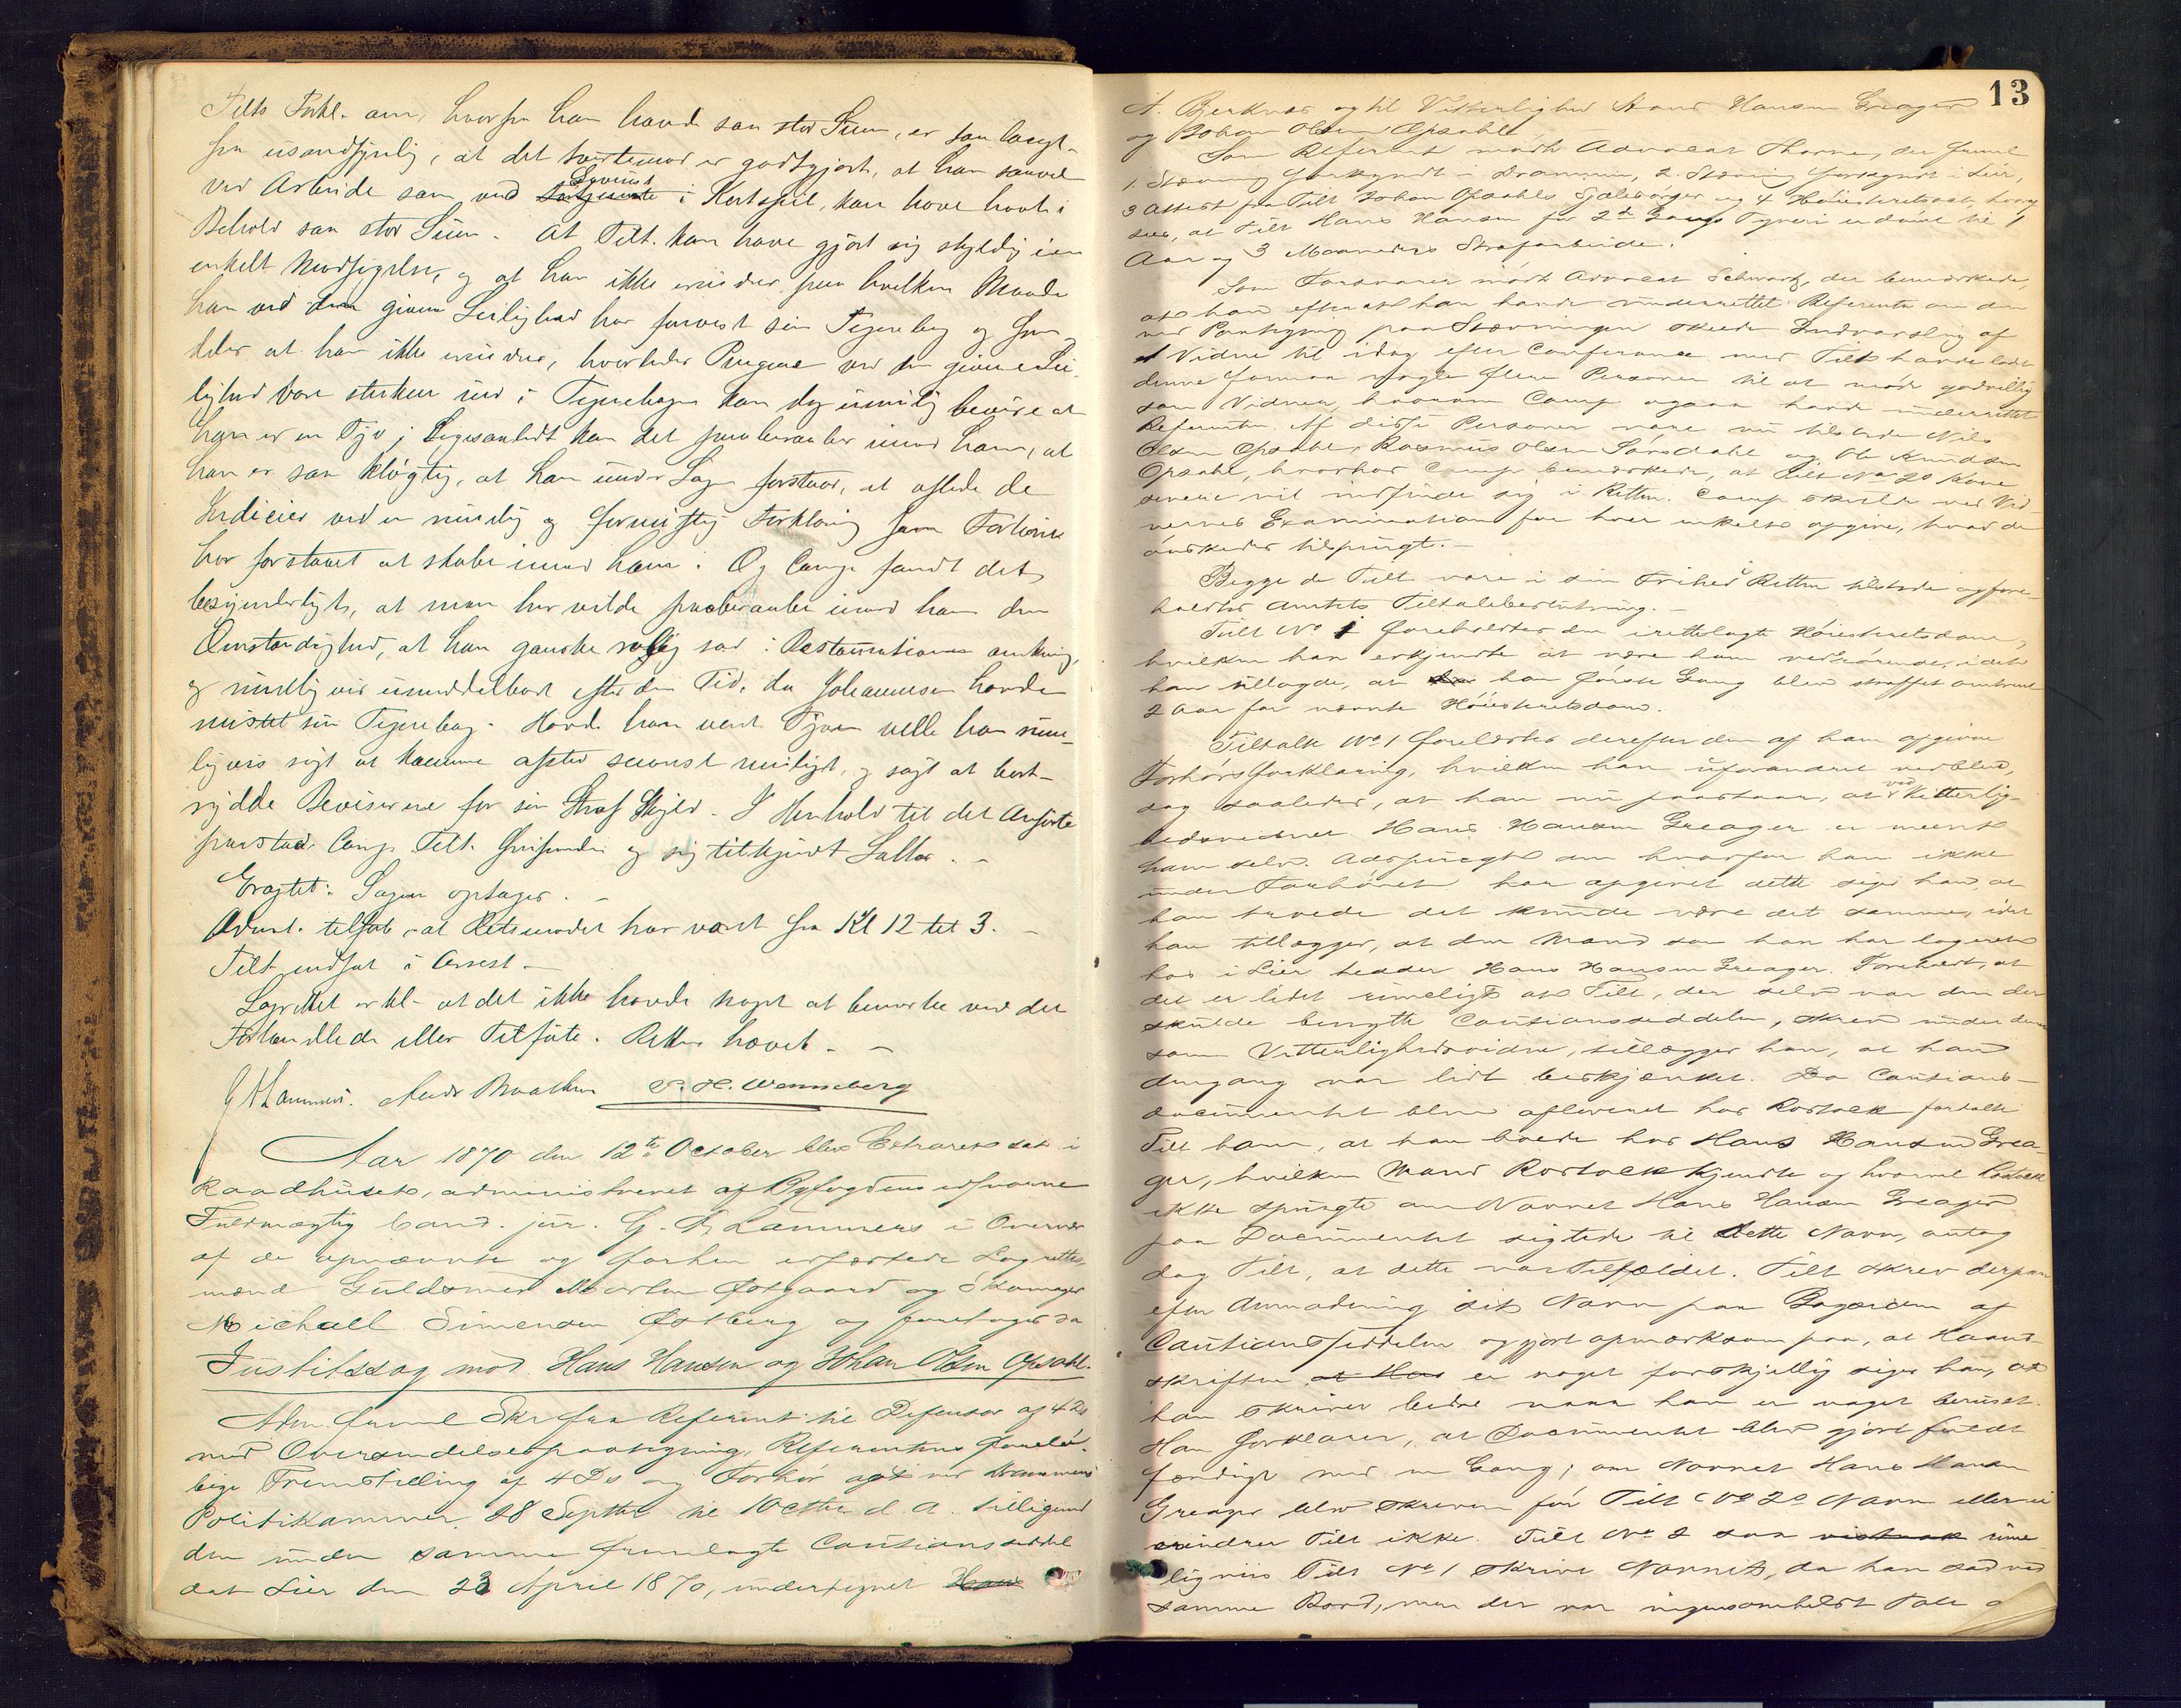 Tilts Forkl. om, hvorfra han havde saa stor Sum, er saa langt
fra usandsynlig, at det tvertimod er godtgjort, at han saavel
ved Arbeide som ved Gevinst i Kortspil, kan have havt i
Behold saa stor Sum. At Tilt. kan have gjort sig skyldig i en
enkelt Modsigelse, og at han ikke erindrer paa hvilken Maade
han ved den givne Leilighed har forvaret sin Tegnebog og
eller at han ikke erindrer, hvorledes Pengene ved den givne Lei-
lighed vare stukken ind i Tegnebogen kan dog umulig bevise at
han er en Tyv; Ligesaalidt kan det paaberaabes imod ham, at
han er saa kløgtig, at han under Sagen forstaar, at aflede de
Indicier ved en rimelig og fornuftig Forklaring som
har forstaaet at skabe imod ham. Og Comp. fandt det
besynderligt, at man her vilde paaberaabe imod ham den
Omstændighed, at han ganske rolig sad i Restaurationen
og rimeligvis umiddelbart efter den Tid, da Johannesen havde
mistet sin Tegnebog. Havde han været Tyven ville han rime-
ligvis søgt at komme afsted snarest muligt, og søgt at bort-
rydde Beviserne for sin Straf Skyld. I Henhold til det Anførte
paastod Comp. Tilt. frifunden og sig tilkjendt Sallær. -
Eragtet: Sagen optages. -
Admst. tilføiede, at Retsmødet har varet fra Kl 12 til 3. -
Tilt. indsat i Arrest. -
Lagrettet erkl. at det ikke havde noget at bemærke ved det
Forhandlede eller Tilførte. Retten hævet. -
G Lammers. Braathen P. H. Wenneberg
Aar 1870 den 12te October blev Extraret sat i
Raadhuset, administreret af Byfogdens edsvorne
Fuldmægtig Cand. jur. G. A. Lammers i Overvær
af de opnævnte og forhen edfæstede Lagrettes-
mænd Guldsmed Morten Østgaard og Skomager
Michael Simensen Østberg og foretoges da
Justitssag mod Hans Hansen og Johan Olsen Opsahl.
Adm. freml. Skr. fra Referent til Defensor af 4 Ds
med Oversendelsespaategning, Referentens forelø-
bige Fremstilling af 4 Ds og Forhør opt. ved Drammens
Politikammer 28 Septbr til 1 Octbr d. A. tilligemed
den under samme fremlagte Cautionsseddel
dat. Lier den 23 April 1870, undertegnet
13
A. og til Vitterlighed Hans Hansen Greager
og Johan Olsen Opsahl.
Som Referent mødte Advocat Thorne, der freml.
1. Stævning forkyndt i Drammen, 2. Stævning forkyndt i Lier,
3 Attest fra Tilt Johan Opsahls Sjælesørger og 4 Høiesteretsact, hvoraf
sees, at Tilt Hans Hansen for 2d Gangs Tyveri er dømt til 1
Aar og 3 Maaneders Strafarbeide.
Som Forsvarer mødte Advocat Schwartz, der bemærkede,
at han efterat han havde underrettet Referenten om den
ved Paategning paa Stævningen skeede Indvarsling af
1 Vidne til idag efter Conference med Tilt havde ladet
denne formaa nogle flere Personer til at møde godvillig
som Vidner, hvorom Comp ogsaa havde underrettet
Referenten. Af disse Personer vare nu tilstede Nils
Olsen Opsahl, Rasmus Olsen Sørsdahl og Ole Knudsen
Opsahl, hvorhos Comp. bemærkede, at Tilt No 2s Kone
senere vil indfinde sig i Retten. Comp skulde ved Vid-
nernes Examination for hver enkelt opgive, hvad de
ønskedes tilspurgt. -
Begge de Tilt vare i sin Frihed i Retten tilstede og fore-
holdtes Amtets Tiltalebeslutning. -
Tilt No 1 foreholdtes den irettelagte Høiesteretsdom,
hvilken han erkjendte at være ham vedrørende, idet
han tillagde, at han første Gang blev straffet omtrent
2 Aar før nævnte Høiesteretsdom.
Tiltalte No 1 forelæstes derefter den af ham afgivne
Forhørsforklaring, hvilken han uforandret vedblev,
dog saaledes, at han nu paastaar, at ved Vitterlig-
hedsvidnet Hans Hansen Greager er meent
ham selv. Adspurgt om hvorfor han ikke
under Forhøret har opgivet dette siger han, at
han troede det kunde være det samme, idet
han tillægger, at den Mand som han har logeret
hos i Lier hedder Hans Hansen Greager. Foreholdt, at
det er lidet rimeligt at Tilt, der selv var den der
skulde benytte Cautionsseddelen, skrev under den
som Vitterlighedsvidne, tillægger han, at han
dengang var lidt beskjænket. Da Cautions-
documentet blev afleveret hos Rostock fortalte
Tilt ham, at han boede hos Hans Hansen Grea-
ger, hvilken Mand Rostock kjendte og hvorvel Rostock
ikke spurgte om Navnet Hans Hansen Greager
paa Documentet sigtede til dette Navn, antog
dog Tilt, at dette var Tilfældet. Tilt skrev derpaa
efter Anmodning sit Navn paa Bagsiden af
Cautionsseddelen og gjort opmærksom paa, at Haand-
skriften er noget forskjellig siger han, at
han skriver bedre naar han er noget beruset.
Han forklarer, at Documentet blev gjort fuldt
færdigt med en Gang; om Navnet Hans Hansen
Greager blev skreven før Tilt No 2s Navn eller ei
erindrer Tilt ikke. Tilt No 2 saa rime-
ligviis Tilt No 1 skrive Navnet, da han sad ved
samme Bord, men der var ingensomhelst Tale